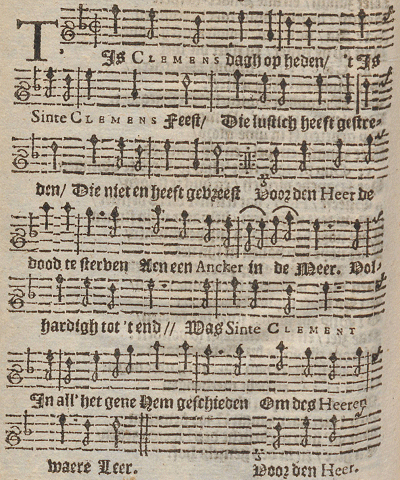 T'Is CLEMENS dagh op heden/ 't Is
Sinte CLEMENS Feest/ Die lustich heeft gestre-
den/ Die niet en heeft gevreest Voor den Heer de
dood te sterven Aen een Ancker in de Meer. Vol-
hardigh tot 't end// Was Sinte CLEMENT
In all' het gene hem geschieden Om des Heeren
waere Leer. Voor den Heer.